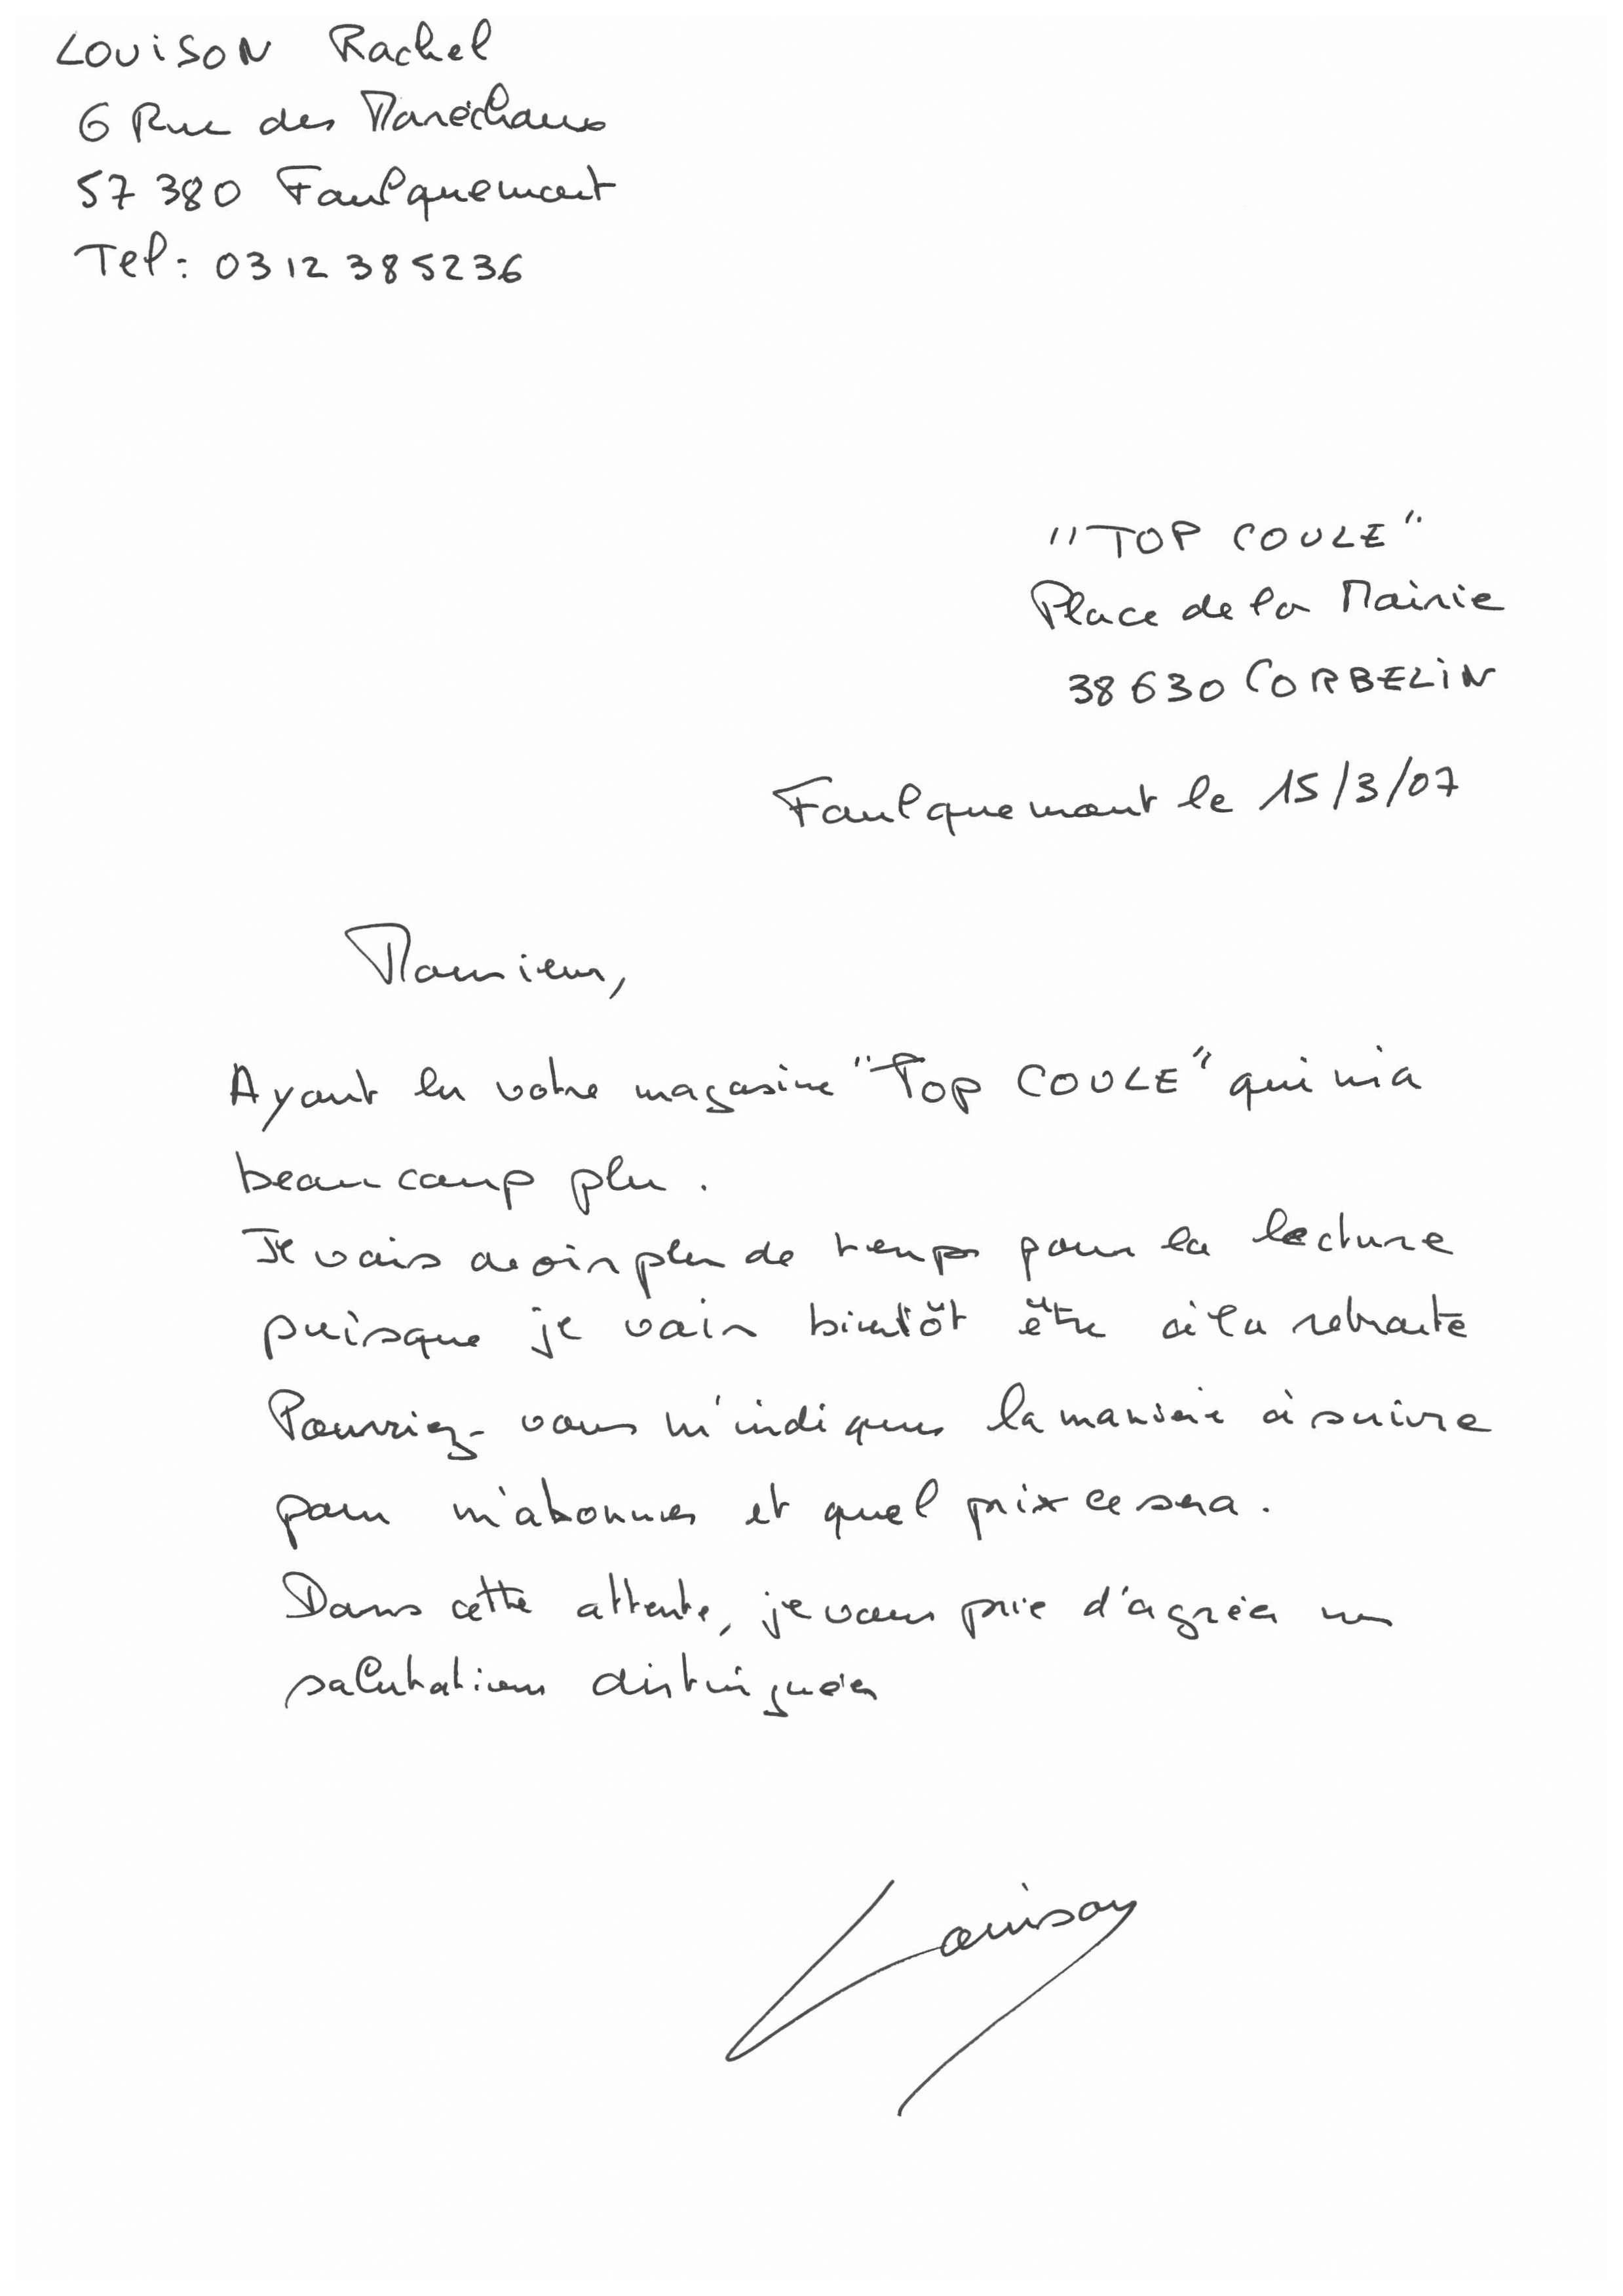 LOUISON Rachel
6 Rue des Maréchaux
57 380 Faulquemont
Tel : 03 12 38 52 36
"TOP COULE"
Place de la Mairie
38 630 CORBELIN
Faulquemont le 15/3/07
Monsieur,
Ayant lu votre magasine "TOP COULE" qui m'a
beaucoup plu.
Je vais avoir plus de temps pour la lecture
puisque je vais bientôt être à la retraite
Pourriez-vous m'indiquer la manière à suivre
pour m'abonner et quel prix ce sera.
Dans cette attente, je vous prie d'agréer mes
salutations distinguées
Louison